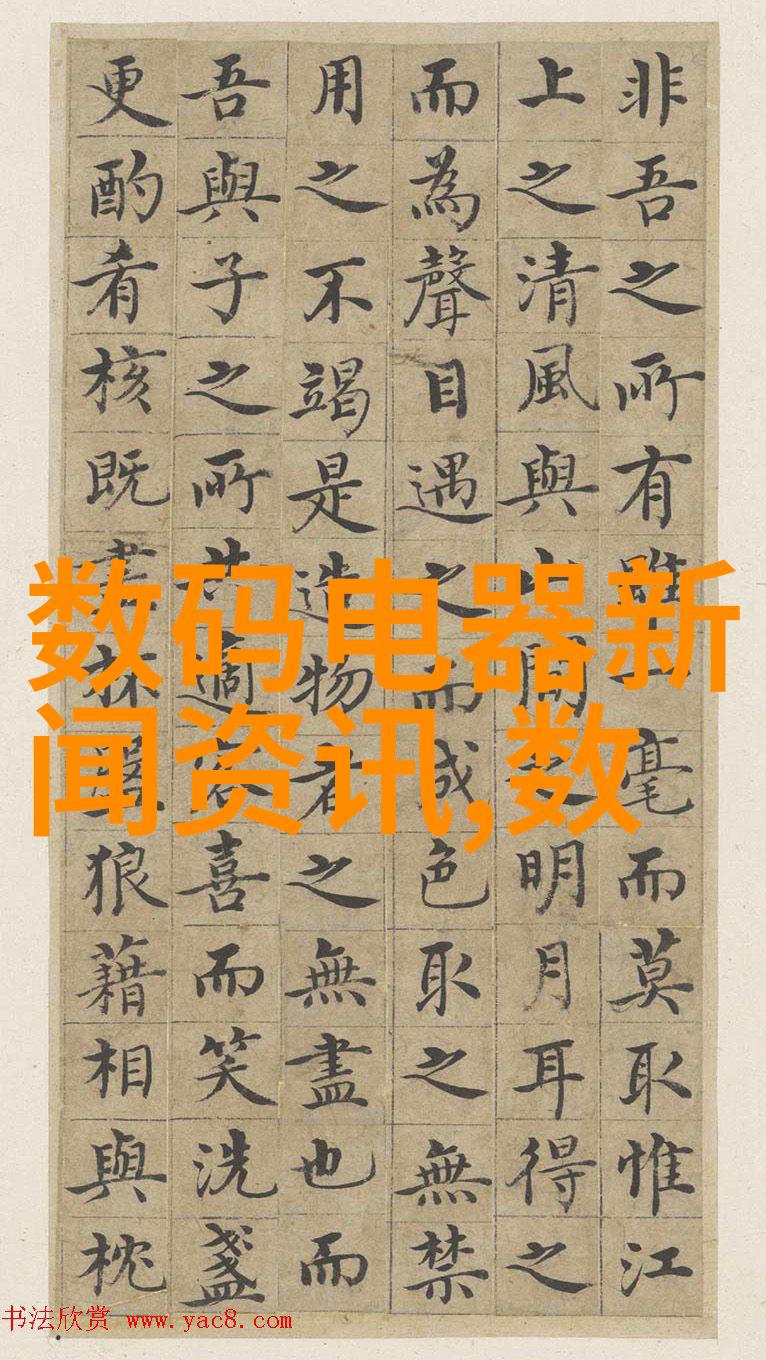 非吾之所有雖一毫而莫取惟江
上之清風與山間之明月耳得之
而為聲目遇之而成色取之無禁
用之不竭是造物者之無盡也而
吾與子之所共適客喜而笑洗盞
更酌肴核既盡杯盤狼藉相與枕
数码电器新
闻资讯,数
书法欣赏 www.yac8.com